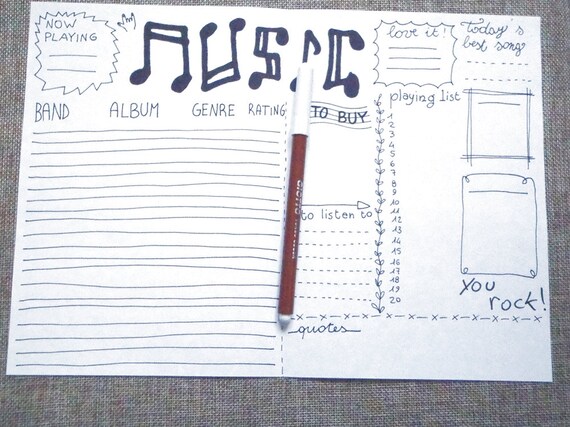 NOW
PLAYING
MUSIC
love it!
today's
best song
BAND ALBUM GENRE RATING
TO BUY
playing list
1
2
3
4
5
6
7
8
9
10
11
12
13
14
15
16
17
18
19
20
to listen to
You
rock!
quotes